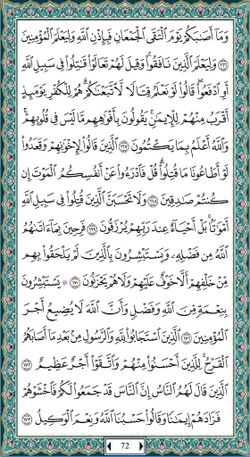 وَمَا أَصَابَكُمْ يَوْمَ الْتَقَى الْجَمْعَانِ فَبِإِذْنِ اللَّهِ وَلِيَعْلَمَ الْمُؤْمِنِينَ
١٦٦ وَلِيَعْلَمَ الَّذِينَ نَافَقُوا وَقِيلَ لَهُمْ تَعَالَوْا قَاتِلُوا فِي سَبِيلِ اللَّهِ
أَوِ ادْفَعُوا قَالُوا لَوْ نَعْلَمُ قِتَالًا لَاتَّبَعْنَاكُمْ هُمْ لِلْكُفْرِ يَوْمَئِذٍ
أَقْرَبُ مِنْهُمْ لِلْإِيمَانِ يَقُولُونَ بِأَفْوَاهِهِمْ مَا لَيْسَ فِي قُلُوبِهِمْ
وَاللَّهُ أَعْلَمُ بِمَا يَكْتُمُونَ ١٦٧ الَّذِينَ قَالُوا لِإِخْوَانِهِمْ وَقَعَدُوا
لَوْ أَطَاعُونَا مَا قُتِلُوا قُلْ فَادْرَءُوا عَنْ أَنْفُسِكُمُ الْمَوْتَ إِنْ
كُنْتُمْ صَادِقِينَ ١٦٨ وَلَا تَحْسَبَنَّ الَّذِينَ قُتِلُوا فِي سَبِيلِ اللَّهِ
أَمْوَاتًا بَلْ أَحْيَاءٌ عِنْدَ رَبِّهِمْ يُرْزَقُونَ ١٦٩ فَرِحِينَ بِمَا آتَاهُمُ
اللَّهُ مِنْ فَضْلِهِ وَيَسْتَبْشِرُونَ بِالَّذِينَ لَمْ يَلْحَقُوا بِهِمْ
مِنْ خَلْفِهِمْ أَلَّا خَوْفٌ عَلَيْهِمْ وَلَا هُمْ يَحْزَنُونَ ١٧٠ يَسْتَبْشِرُونَ
بِنِعْمَةٍ مِنَ اللَّهِ وَفَضْلٍ وَأَنَّ اللَّهَ لَا يُضِيعُ أَجْرَ
الْمُؤْمِنِينَ ١٧١ الَّذِينَ اسْتَجَابُوا لِلَّهِ وَالرَّسُولِ مِنْ بَعْدِ مَا أَصَابَهُمُ
الْقَرْحُ لِلَّذِينَ أَحْسَنُوا مِنْهُمْ وَاتَّقَوْا أَجْرٌ عَظِيمٌ ١٧٢
الَّذِينَ قَالَ لَهُمُ النَّاسُ إِنَّ النَّاسَ قَدْ جَمَعُوا لَكُمْ فَاخْشَوْهُمْ
فَزَادَهُمْ إِيمَانًا وَقَالُوا حَسْبُنَا اللَّهُ وَنِعْمَ الْوَكِيلُ ١٧٣
72